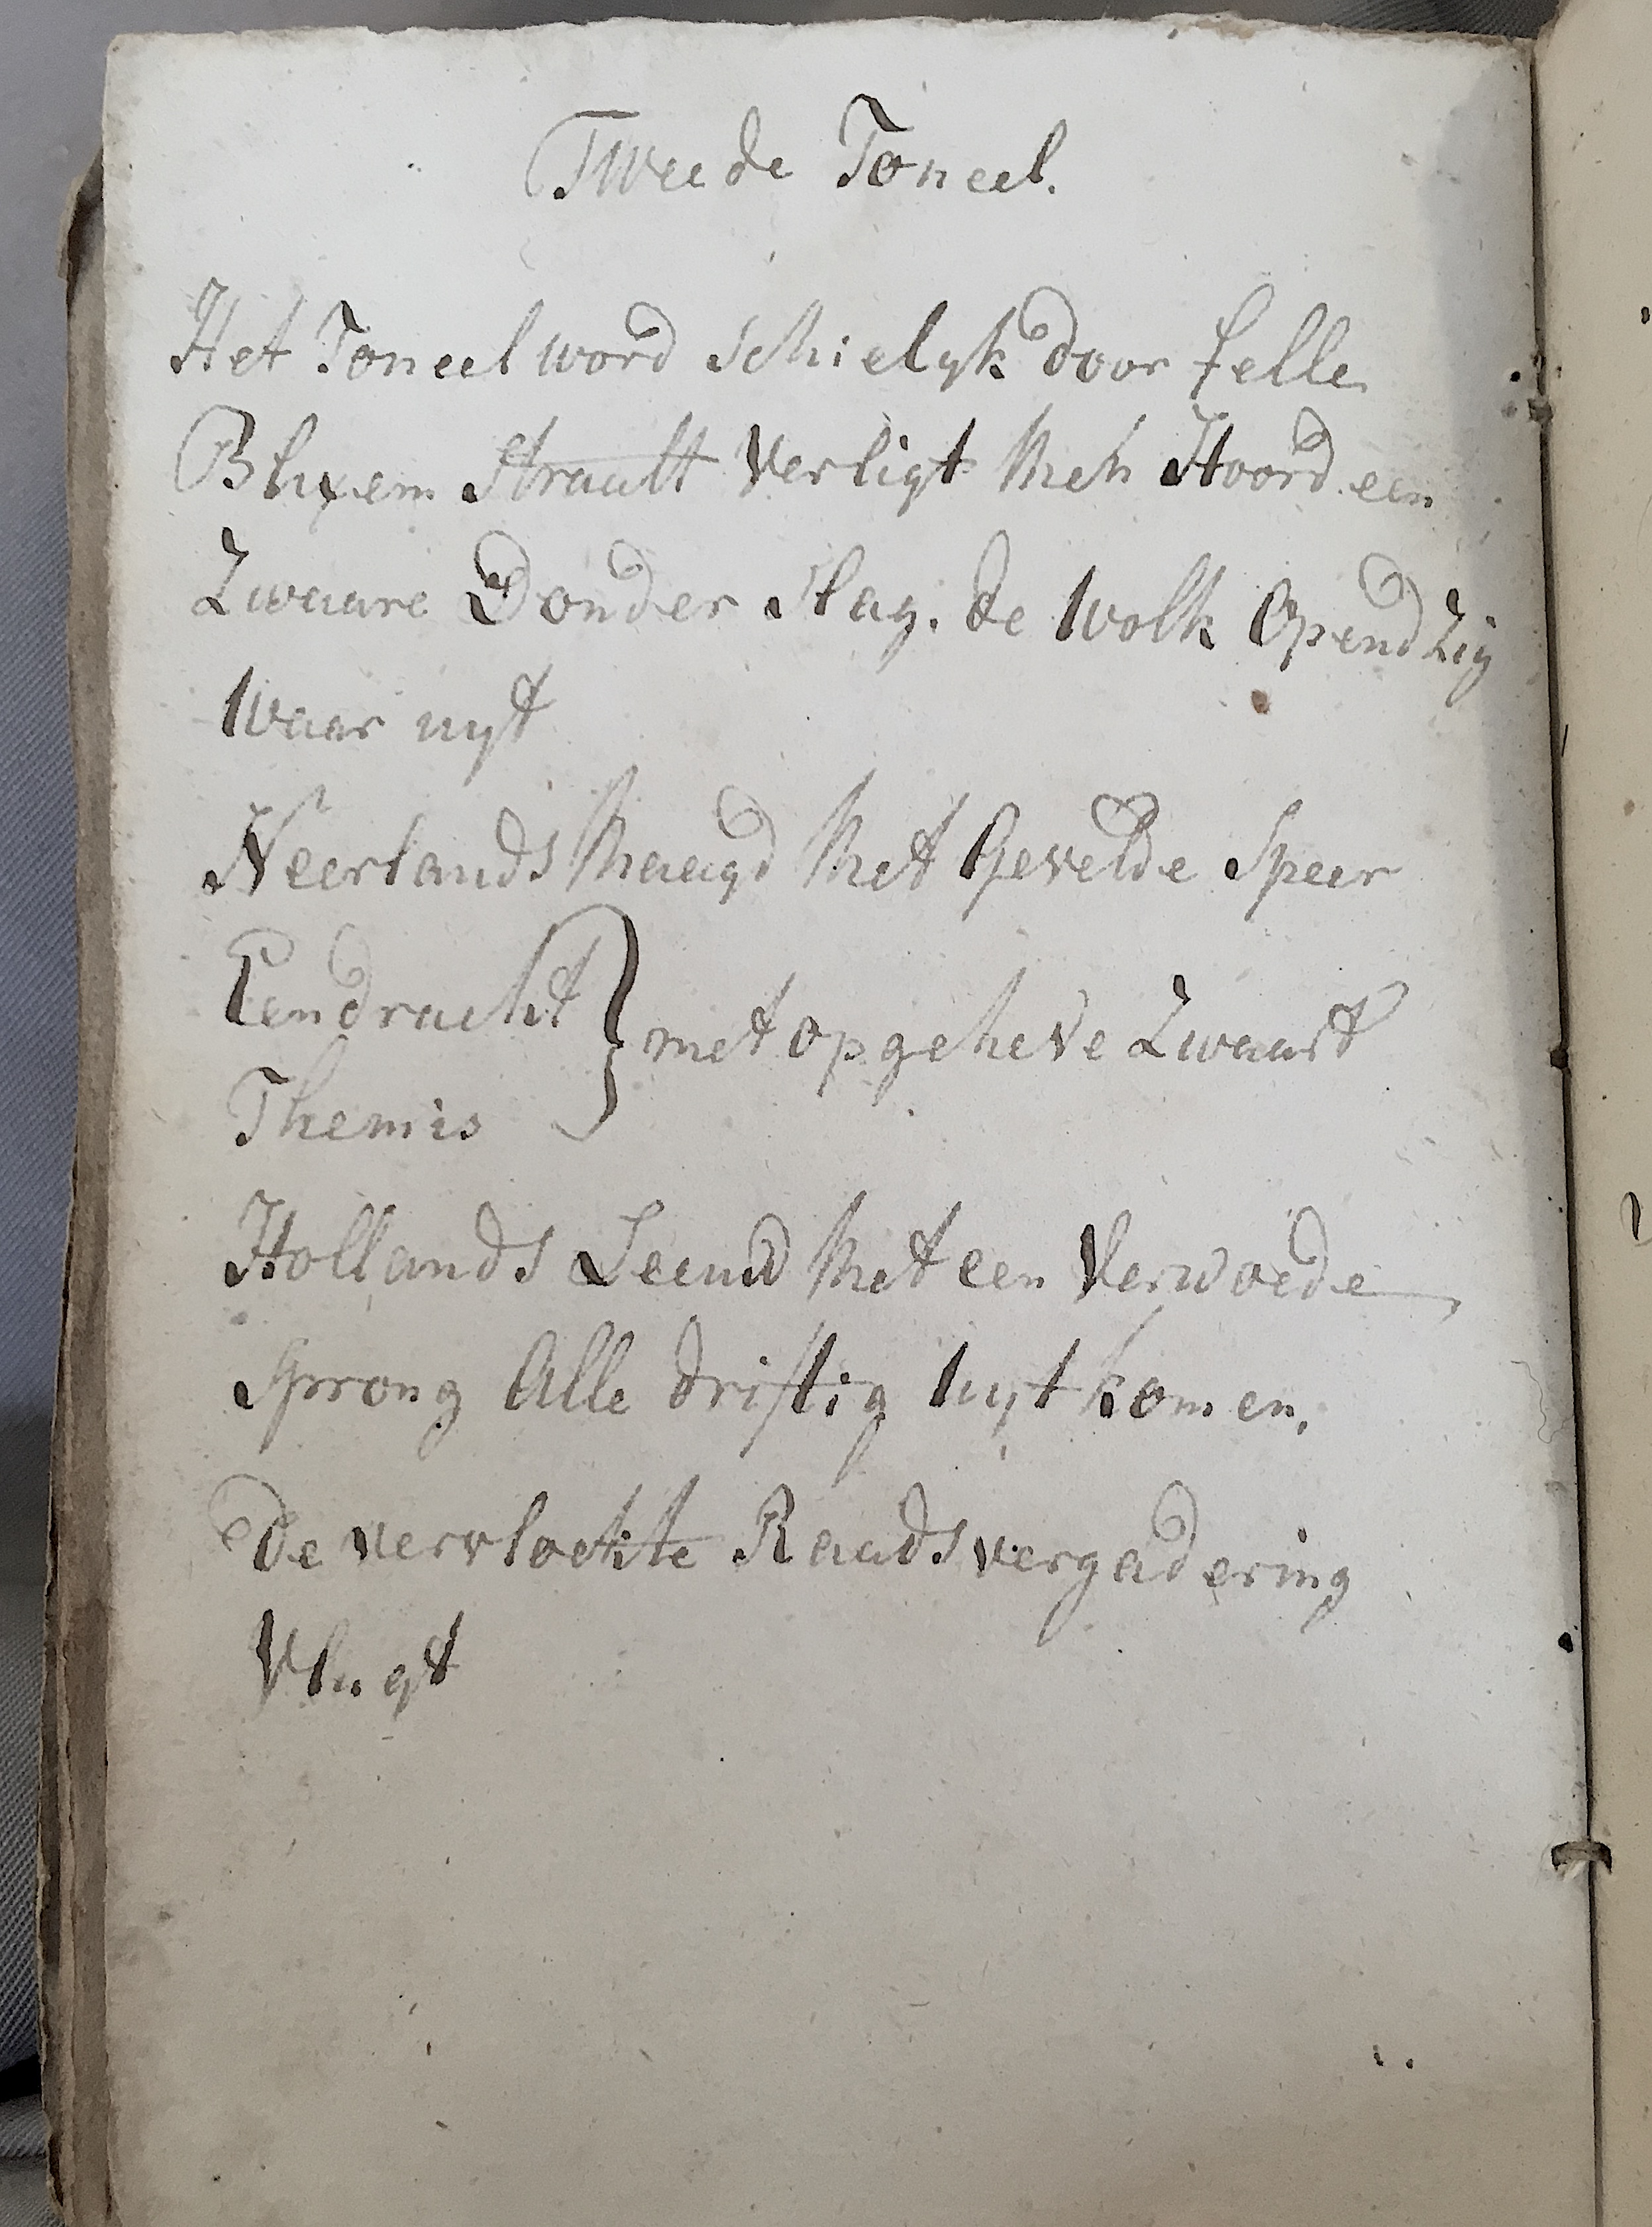 Tweede Toneel.
Het Toneel word schielyk door felle
Blixem Straalt Verligt Men Hoord een
Zwaare Donder Slag. de Wolk Opend Zig
Waar uyt
Neerlands Maagd Met Gevelde Speer
Eendracht } met opgeheve Zwaart
Themis
Hollands Leeuw Met een Verwoede
Sprong Alle driftig Uyt komen,
De vervloekte Raadsvergadering
Vlugt